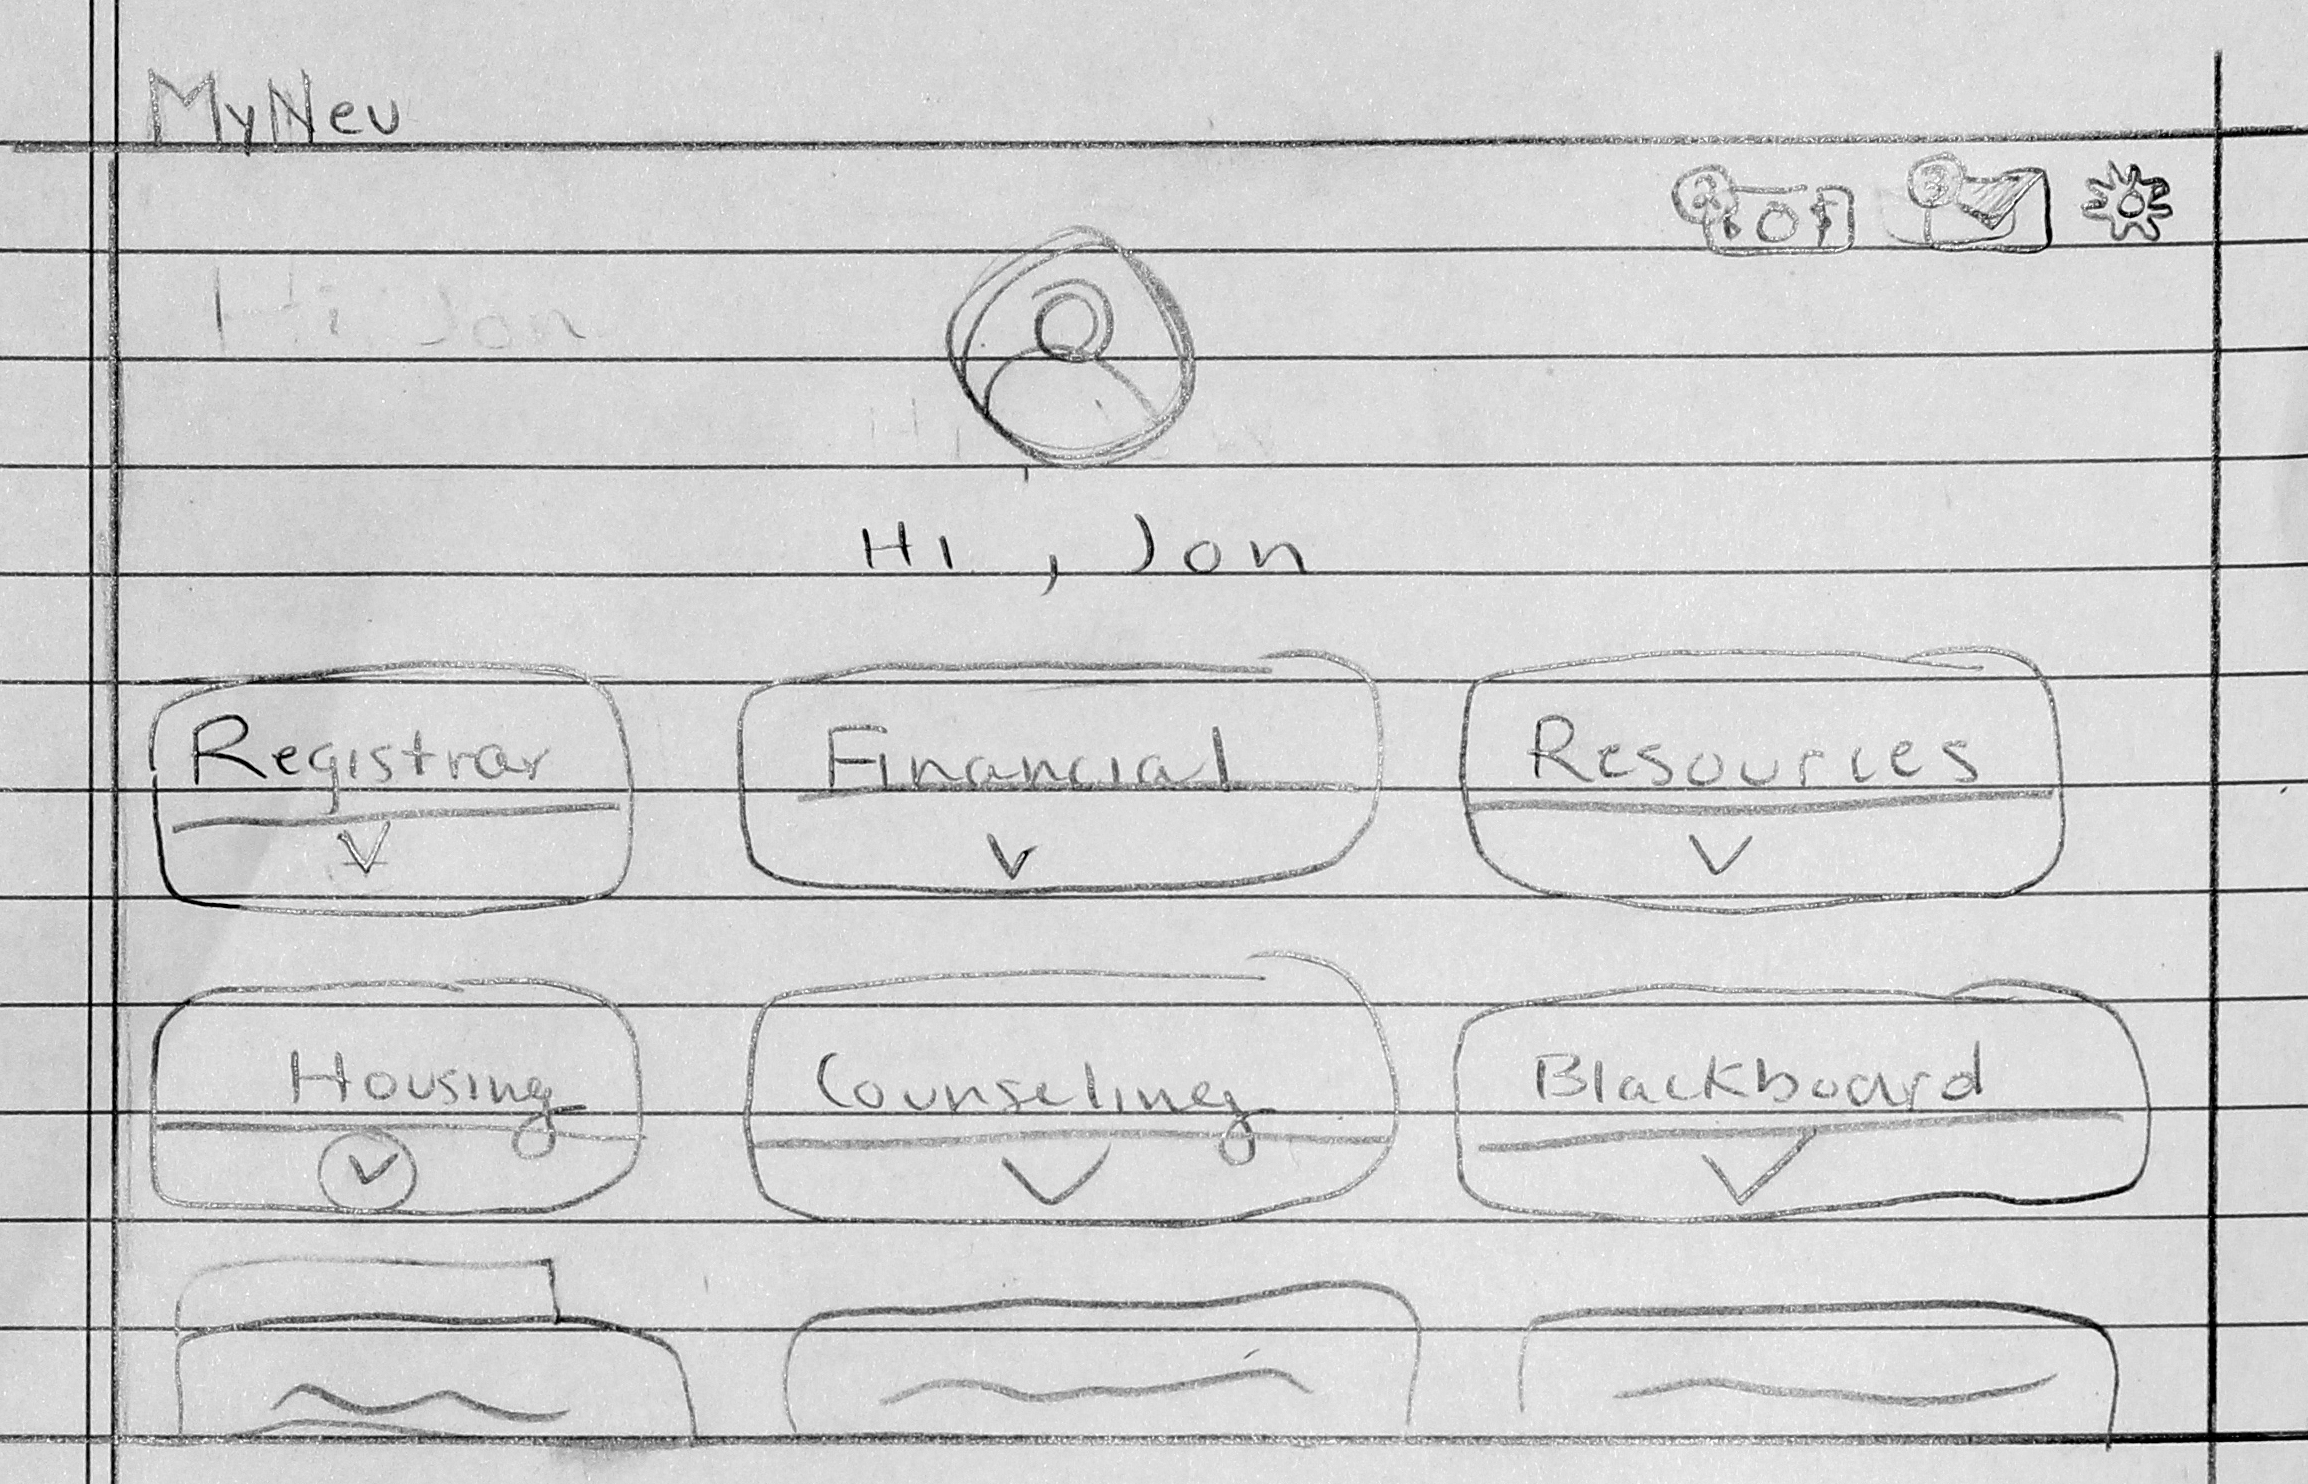 MyNeu
2 3
Hi Jon
Hi, Jon
Registrar Financial Resources
Housing Counseling Blackboard